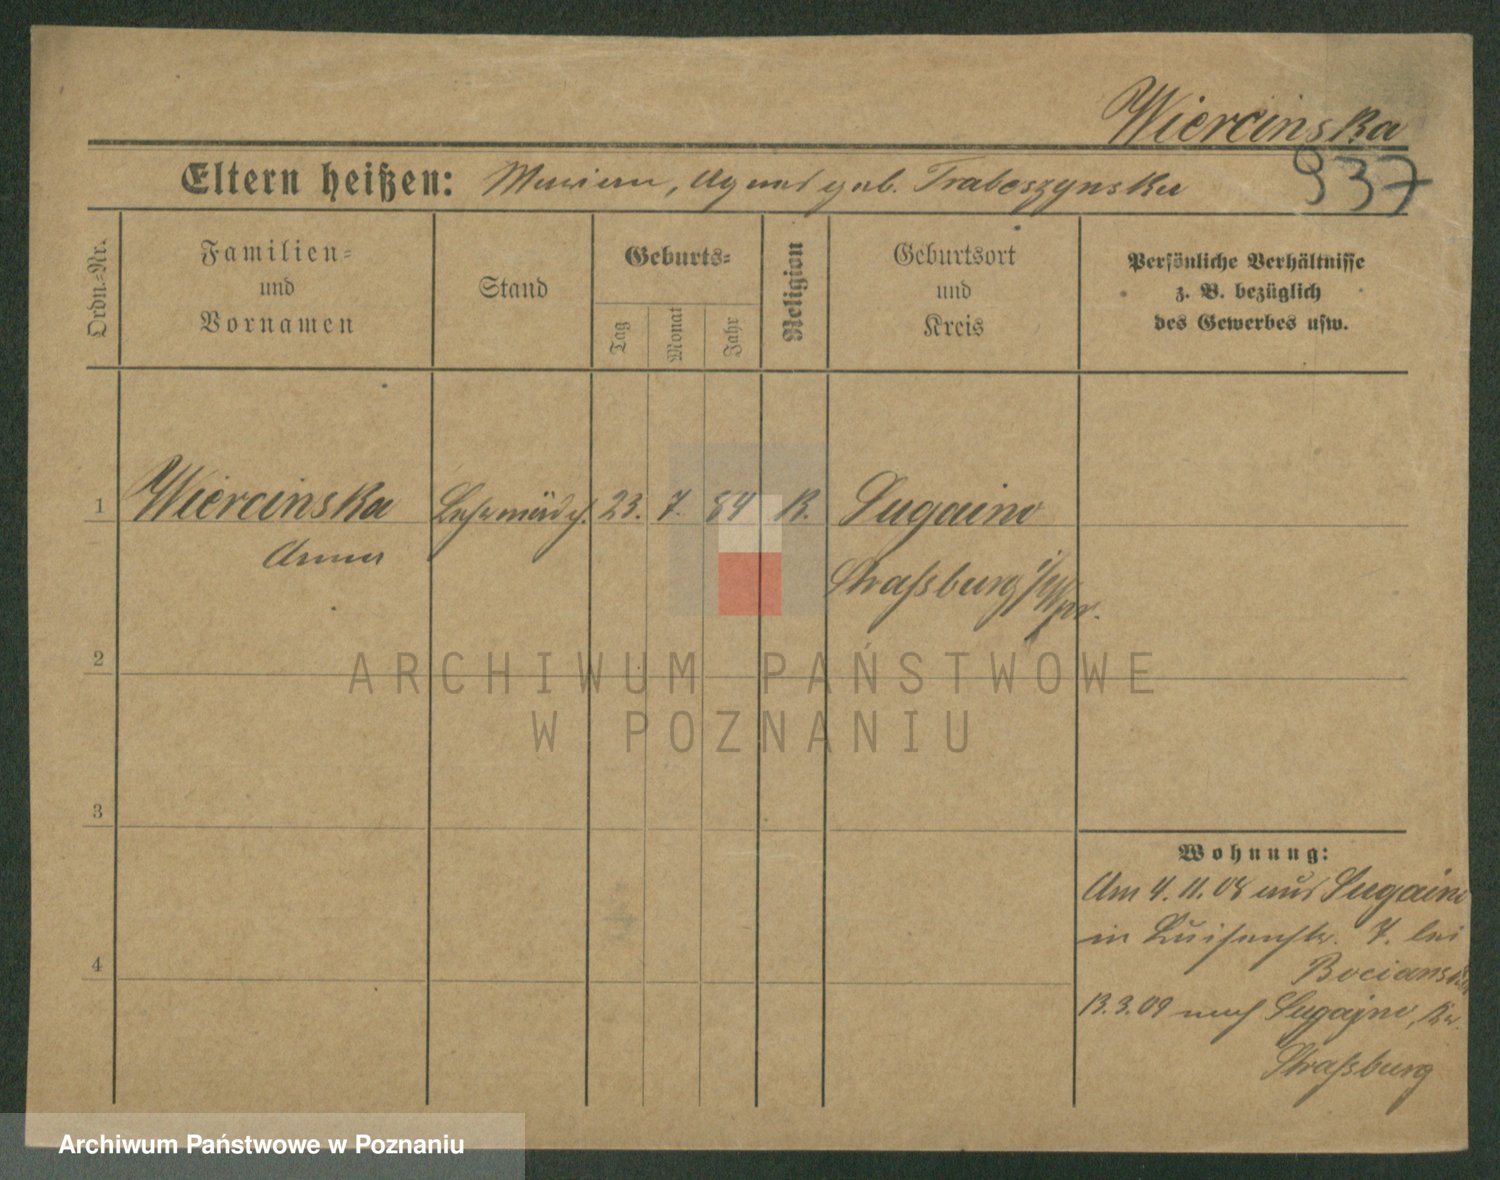 Wiercinska
937
Eltern heißen: Marian, Agnes geb. Trabeszynska
Ordn.-Nr.
Familien-
und
Vornamen
Stand
Geburts-
Tag
Monat
Jahr
Religion
Geburtsort
und
Kreis
Persönliche Verhältnisse
z. B. bezüglich
des Gewerbes usw.
1 Wiercinska Lehrmädch. 23. 7. 84 K. Sugaino
Anna
Straßburg i/Wpr.
2
ARCHIWUM PAŃSTWOWE
W POZNANIU
3
Wohnung:
Am 4.11.08 aus Sugaino
in Luisenstr. 7. bei
4
13.3.09 nach Sugajno, Kr.
Straßburg
Archiwum Państwowe w Poznaniu